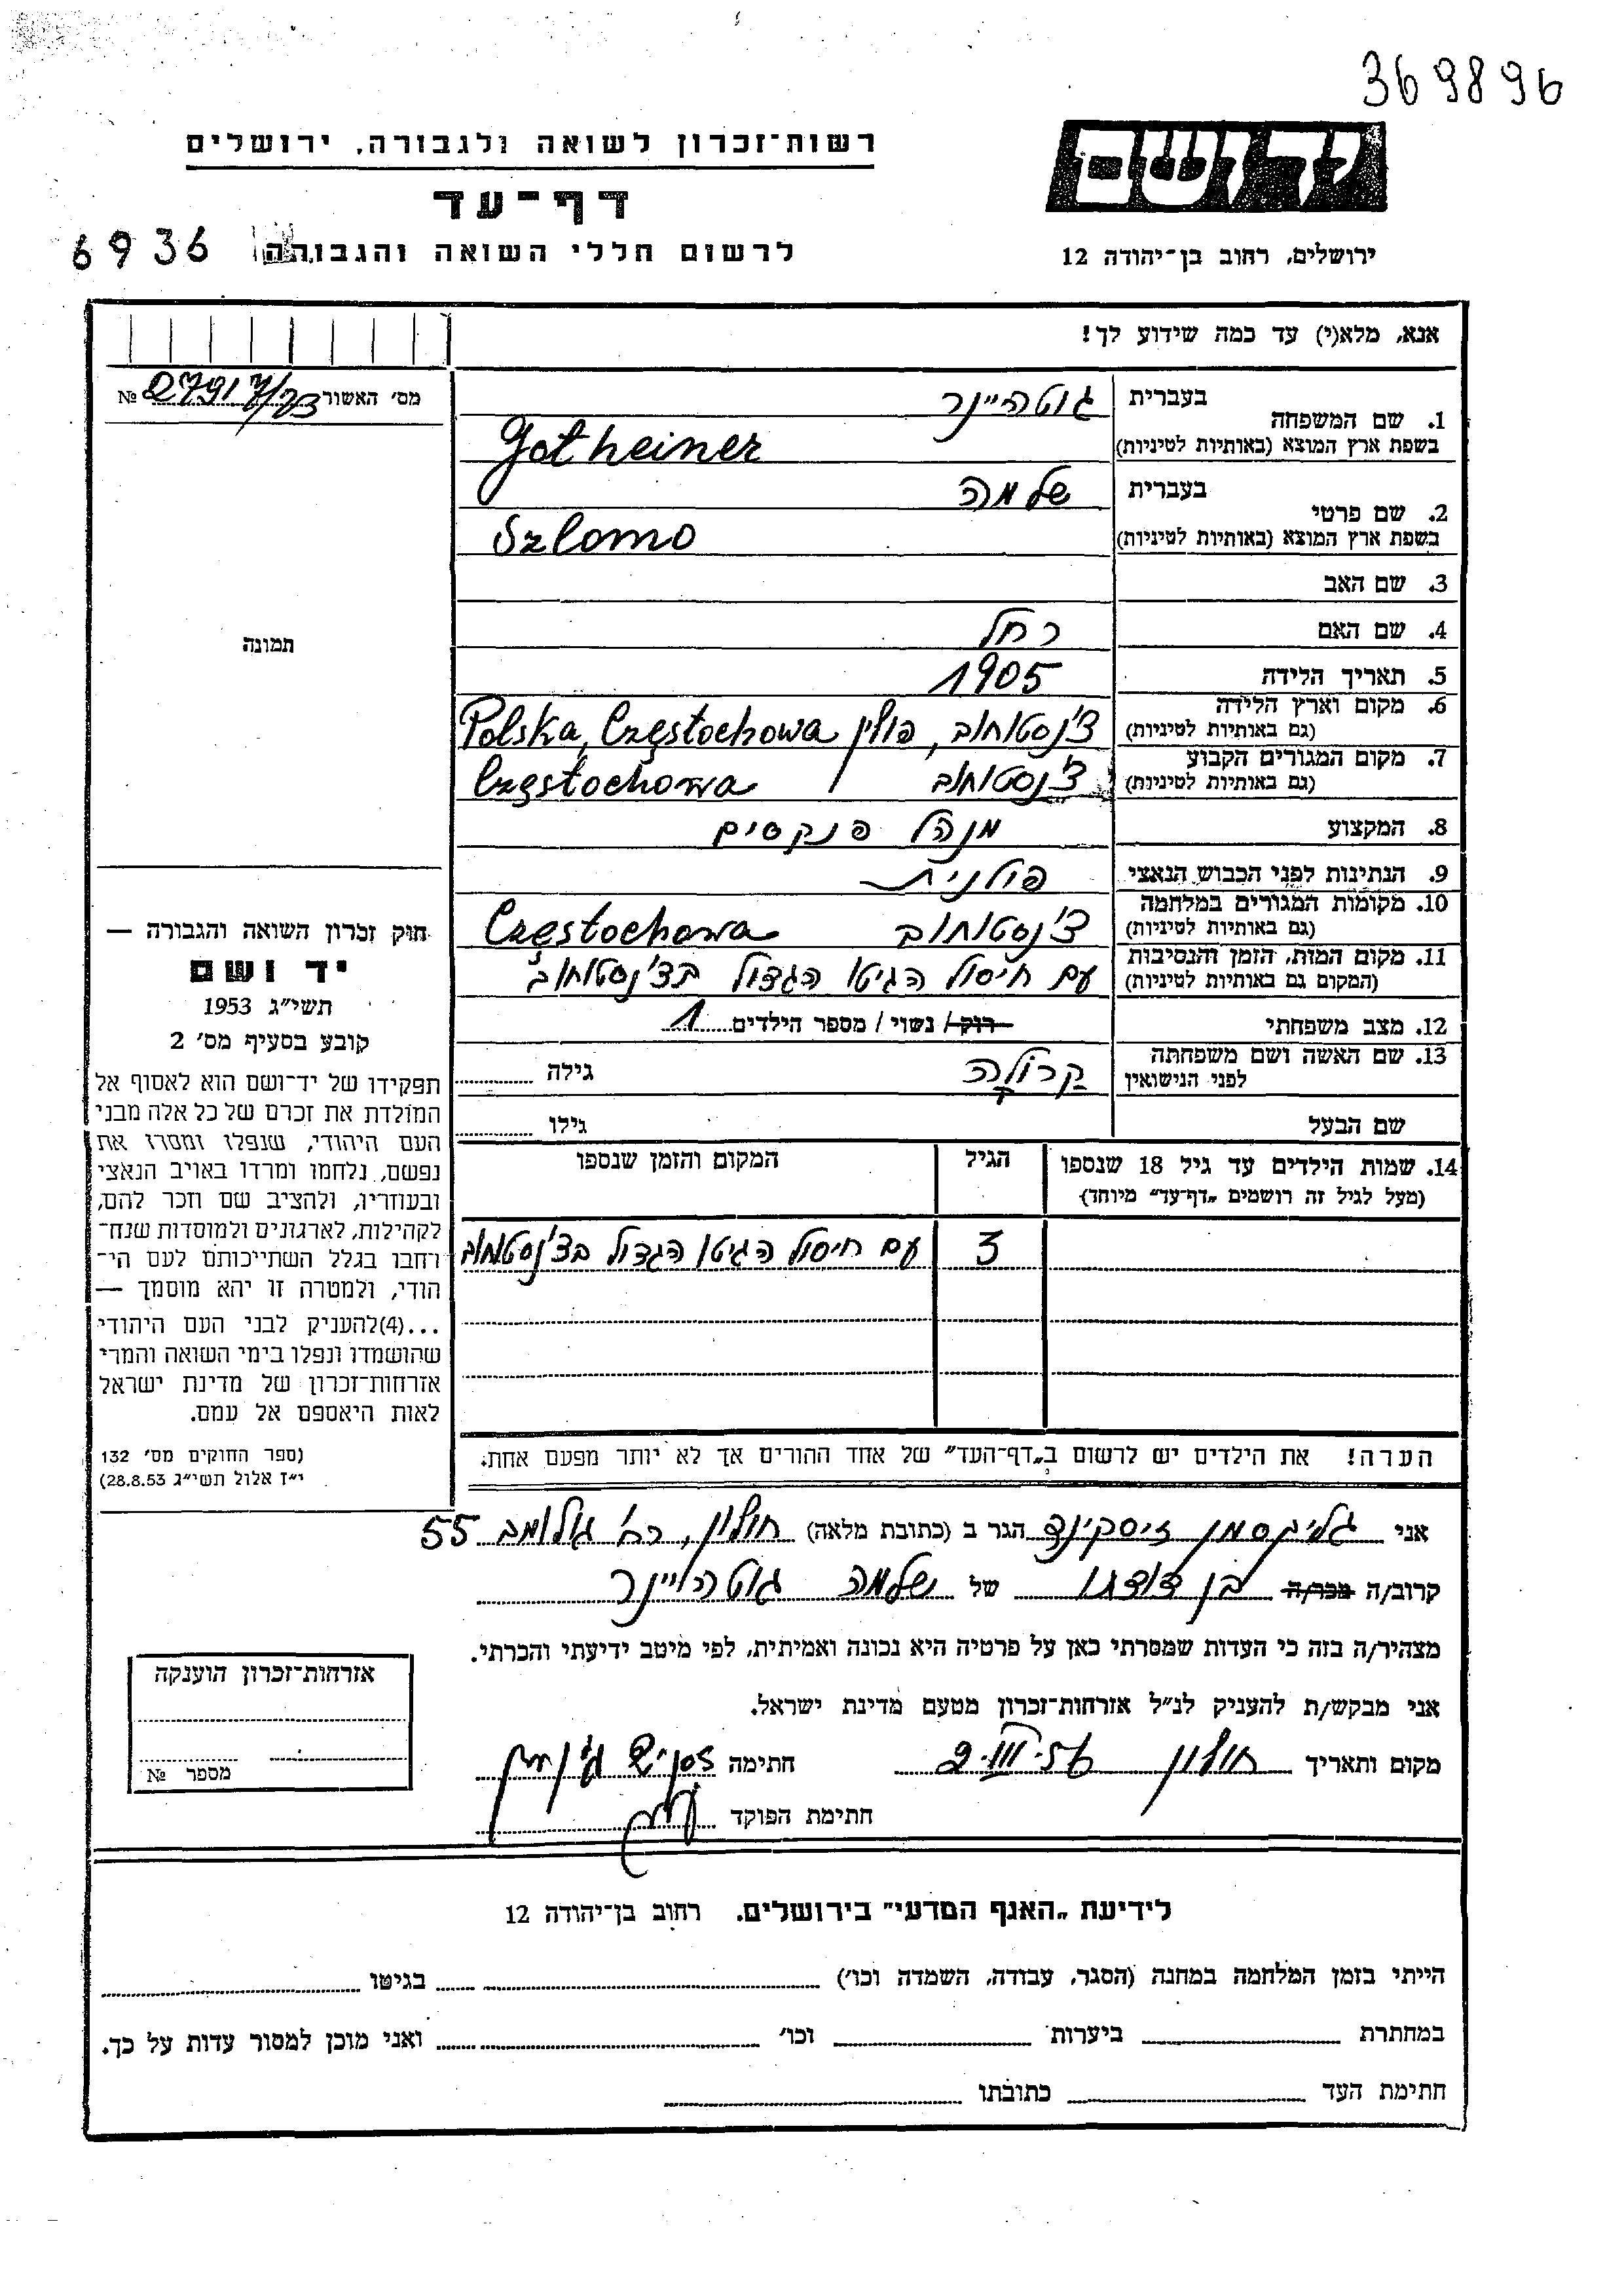 369896
יד ושם
רשות־זכרון לשואה ולגבורה, ירושלים
דף־עד
ירושלים, רחוב בן־יהודה 12
לרשום חללי השואה והגבורה
6936
אנא, מלא(י) עד כמה שידוע לך!
מס׳ האשור № 27917/73
1. שם המשפחה בעברית גוטהיינר
בשפת ארץ המוצא (באותיות לטיניות) Gotheiner
2. שם פרטי בעברית שלמה
בשפת ארץ המוצא (באותיות לטיניות) Szlomo
3. שם האב
4. שם האם רחל
5. תאריך הלידה 1905
6. מקום וארץ הלידה
(גם באותיות לטיניות) צ'נסטוחוב, פולין Polska, Częstochowa
7. מקום המגורים הקבוע
(גם באותיות לטיניות) צ'נסטוחוב Częstochowa
8. המקצוע מנהל פנקסים
9. הנתינות לפני הכבוש הנאצי פולנית
10. מקומות המגורים במלחמה
(גם באותיות לטיניות) צ'נסטוחוב Częstochowa
11. מקום המות, הזמן והנסיבות
(המקום גם באותיות לטיניות) עם חיסול הגיטו הגדול בצ'נסטוחוב
12. מצב משפחתי רוק / נשוי / מספר הילדים 1
13. שם האשה ושם משפחתה
לפני הנישואין קרולה גילה
שם הבעל גילו
14. שמות הילדים עד גיל 18 שנספו
(מעל לגיל זה רושמים „דף־עד״ מיוחד)
הגיל
המקום והזמן שנספו
3 עם חיסול הגיטו הגדול בצ'נסטוחוב
הערה! את הילדים יש לרשום ב„דף־העד״ של אחד ההורים אך לא יותר מפעם אחת.
תמונה
חוק זכרון השואה והגבורה —
יד ושם
תשי״ג 1953
קובע בסעיף מס׳ 2
תפקידו של יד־ושם הוא לאסוף אל
המולדת את זכרם של כל אלה מבני
העם היהודי, שנפלו ומסרו את
נפשם, נלחמו ומרדו באויב הנאצי
ובעוזריו, ולהציב שם וזכר להם,
לקהילות, לארגונים ולמוסדות שנח־
רחבו בגלל השתייכותם לעם הי־
הודי, ולמטרה זו יהא מוסמך —
...(4)להעניק לבני העם היהודי
שהושמדו ונפלו בימי השואה והמרי
אזרחות־זכרון של מדינת ישראל
לאות היאספם אל עמם.
(ספר החוקים מס׳ 132
י״ז אלול תשי״ג 28.8.53)
אני גליקסמן זיסקינד הגר ב (כתובת מלאה) חולון, רח' גולומב 55
קרוב/ה מכר/ה בן דודתו של שלמה גוטהיינר
מצהיר/ה בזה כי העדות שמסרתי כאן על פרטיה היא נכונה ואמיתית, לפי מיטב ידיעתי והכרתי.
אני מבקש/ת להעניק לנ״ל אזרחות־זכרון מטעם מדינת ישראל.
מקום ותאריך חולון 2.III.56 חתימה
חתימת הפוקד
אזרחות־זכרון הוענקה
מספר №
לידיעת „האגף המדעי״ בירושלים. רחוב בן־יהודה 12
הייתי בזמן המלחמה במחנה (הסגר, עבודה, השמדה וכו׳) בגיטו
במחתרת ביערות וכו׳ ואני מוכן למסור עדות על כך.
חתימת העד כתובתו